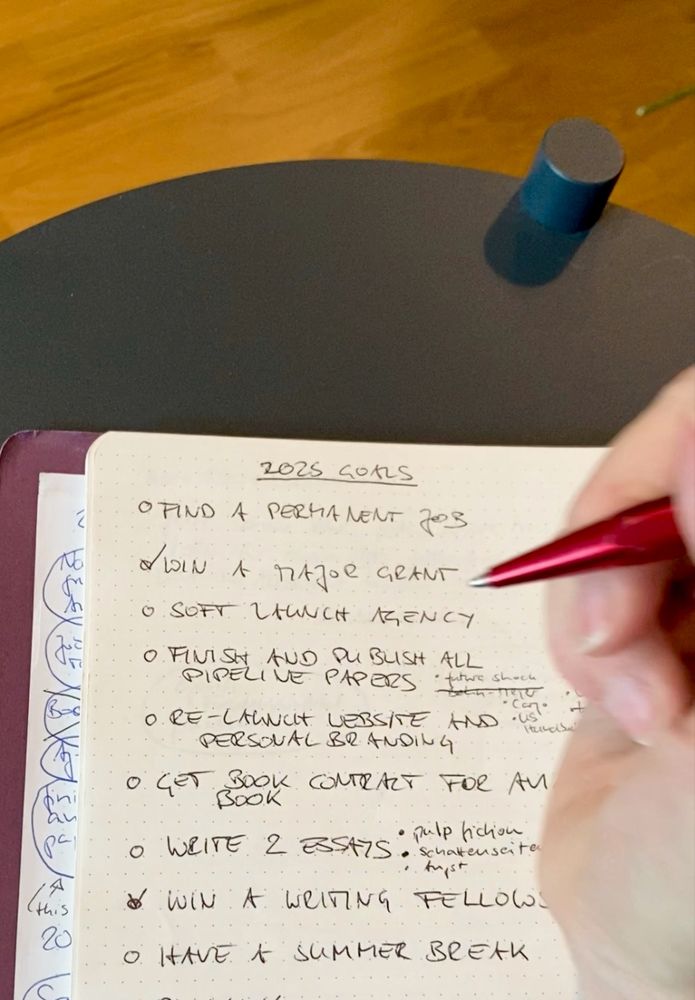 2025 GOALS
FIND A PERMANENT JOB
WIN A MAJOR GRANT
SOFT LAUNCH AGENCY
FINISH AND PUBLISH ALL
PIPELINE PAPERS
• future shock
RE-LAUNCH WEBSITE AND
• US
PERSONAL BRANDING
GET BOOK CONTRACT FOR AM
BOOK
WRITE 2 ESSAYS
• pulp fiction
• schattenseite
• Angst
WIN A WRITING FELLOWS
HAVE A SUMMER BREAK
this
20